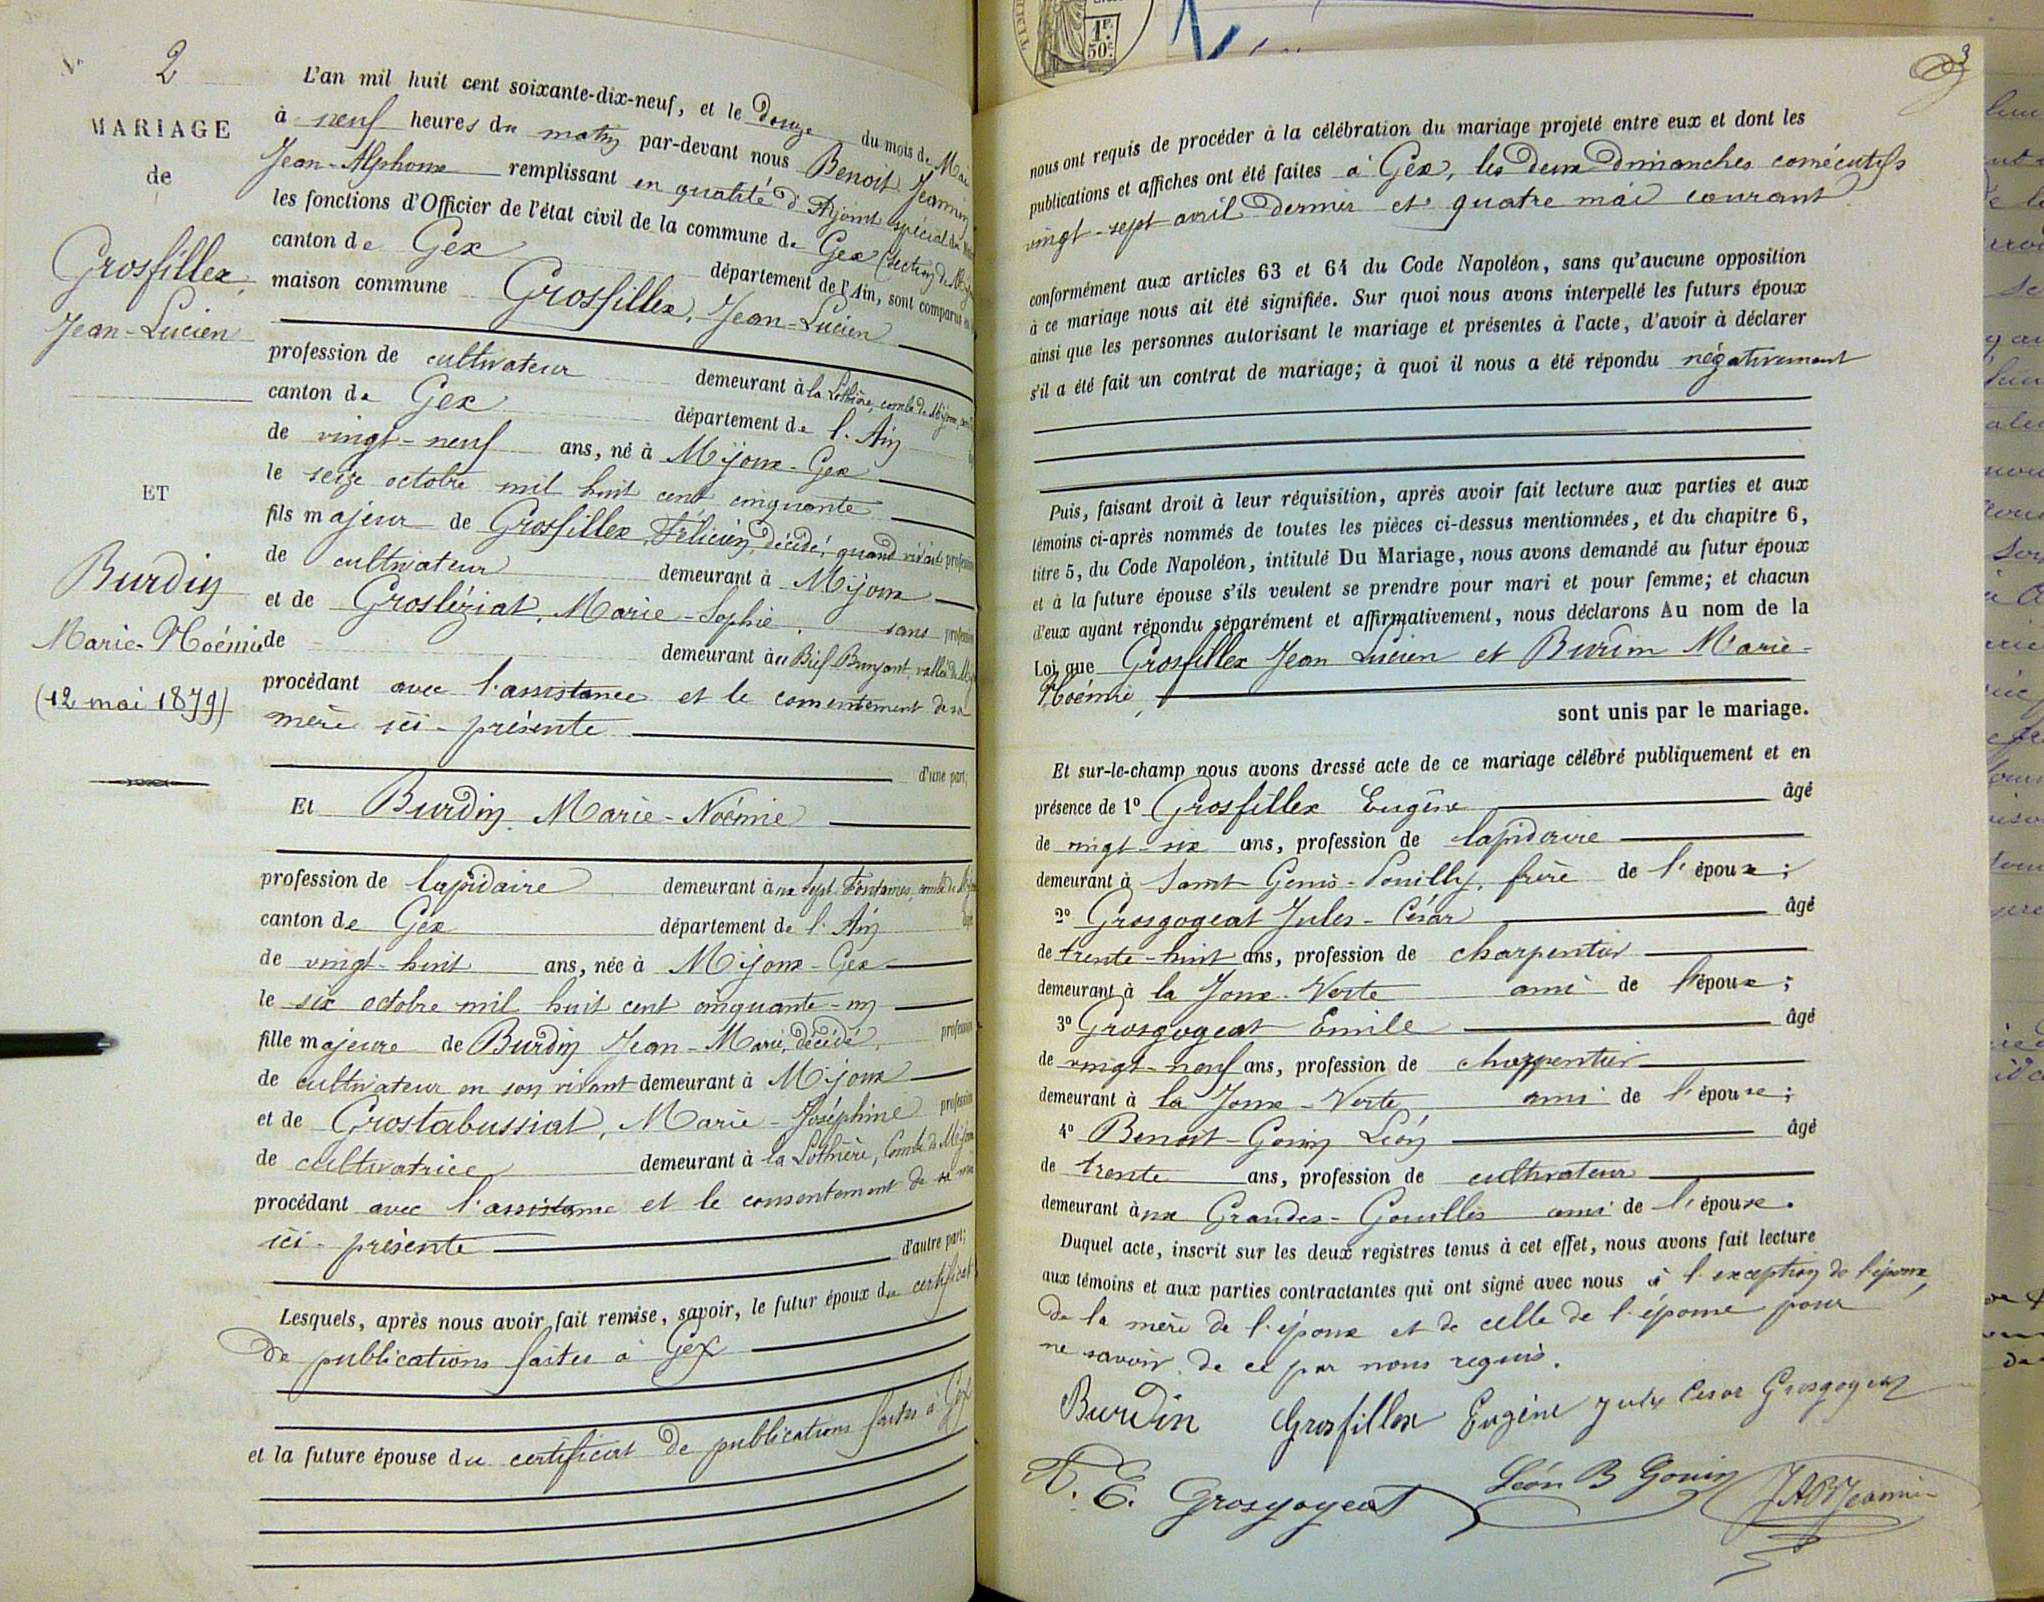 N° 2
MARIAGE
de
Grosfillex,
Jean-Lucien
ET
Burdin
Marie-Noémie
(12 mai 1879)
L'an mil huit cent soixante-dix-neuf, et le Douze du mois de Mai
à neuf heures du matin par-devant nous Benoit Jeannin
Jean-Alphonse remplissant en qualité d'Adjoint spécial
les fonctions d'Officier de l'état civil de la commune de Gex (section de
canton de Gex département de l'Ain, sont comparus en
maison commune Grosfillex, Jean-Lucien
profession de cultivateur demeurant à la Lothière, combe de Mijoux,
canton de Gex département de l'Ain
de vingt-neuf ans, né à Mijoux-Gex
le seize octobre mil huit cent cinquante
fils majeur de Grosfillex, Félicien, décédé, quand vivant profession
de cultivateur demeurant à Mijoux
et de Grosléziat, Marie-Sophie, sans profession
de demeurant au Bief Bruyant, vallée de
procédant avec l'assistance et le consentement de sa
mère ici-présente
d'une part;
Et Burdin Marie-Noémie
profession de lapidaire demeurant aux Sept Fontaines, combe de
canton de Gex département de l'Ain
de vingt-huit ans, née à Mijoux-Gex
le six octobre mil huit cent cinquante-un
fille majeure de Burdin Jean-Marie, décédé, profession
de cultivateur en son vivant demeurant à Mijoux
et de Grostabussiat, Marie-Joséphine profession
de cultivatrice demeurant à la Lothière, Combe de Mijoux
procédant avec l'assistance et le consentement de sa mère
ici-présente
d'autre part;
Lesquels, après nous avoir fait remise, savoir, le futur époux du certificat
de publications faites à Gex
et la future épouse du certificat de publications faites à Gex
1F.
50c.
3
nous ont requis de procéder à la célébration du mariage projeté entre eux et dont les
publications et affiches ont été faites à Gex, les deux dimanches consécutifs
vingt-sept avril dernier et quatre mai courant
conformément aux articles 63 et 64 du Code Napoléon, sans qu'aucune opposition
à ce mariage nous ait été signifiée. Sur quoi nous avons interpellé les futurs époux
ainsi que les personnes autorisant le mariage et présentes à l'acte, d'avoir à déclarer
s'il a été fait un contrat de mariage; à quoi il nous a été répondu négativement
Puis, faisant droit à leur réquisition, après avoir fait lecture aux parties et aux
témoins ci-après nommés de toutes les pièces ci-dessus mentionnées, et du chapitre 6,
titre 5, du Code Napoléon, intitulé Du Mariage, nous avons demandé au futur époux
et à la future épouse s'ils veulent se prendre pour mari et pour femme; et chacun
d'eux ayant répondu séparément et affirmativement, nous déclarons Au nom de la
Loi que Grosfillex Jean Lucien et Burdin Marie-
Noémie,
sont unis par le mariage.
Et sur-le-champ nous avons dressé acte de ce mariage célébré publiquement et en
présence de 1° Grosfillex Eugène âgé
de vingt-six ans, profession de lapidaire
demeurant à Saint-Genis-Pouilly, frère de l'époux;
2° Grosgogeat Jules-César âgé
de trente-huit ans, profession de charpentier
demeurant à la Joux-Verte ami de l'époux;
3° Grosgogeat Emile âgé
de vingt-neuf ans, profession de charpentier
demeurant à la Joux-Verte, ami de l'épouse;
4° Benoit-Gonin Léon âgé
de trente ans, profession de cultivateur
demeurant aux Grandes-Gouilles ami de l'épouse.
Duquel acte, inscrit sur les deux registres tenus à cet effet, nous avons fait lecture
aux témoins et aux parties contractantes qui ont signé avec nous à l'exception de l'époux,
de la mère de l'époux et de celle de l'épouse pour
ne savoir de ce par nous requis.
Burdin Grosfillex Eugène Jules César Grosgogeat
E. Grosgogeat Léon B Gonin JABJeannin